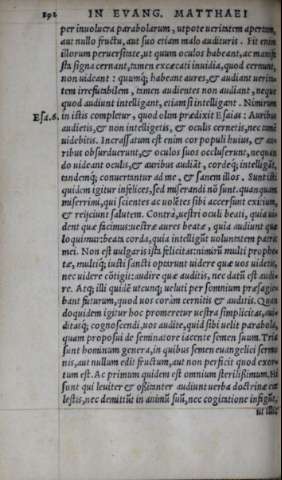 192 IN EVANG. MATTHAEI
per inuolucra parabolarum, utpote uerintem apertam,
aut nullo fructu, aut suo etiam malo audituris. Fit enim
illorum peruersitate, ut quum oculos habeant, ac manife
sta signa cernant, tamen excæcati inuidia, quod cernunt,
non uideant: quumq; habeant aures, & audiant uerita⸗
tem irrefutabilem, tamen audientes non audiant, neque
quod audiunt intelligant, etiamsi intelligant. Nimirum
Esa. 6. in istis completur, quod olim prædixit Esaias: Auribus
audietis, & non intelligetis, & oculis cernetis, nec tamē
uidebitis. Incrassatum est enim cor populi huius, & au⸗
ribus obsurduerunt, & oculos suos occluserunt, ne quan
do uideant oculis, & auribus audiāt, cordeq; intelligāt,
tandemq; conuertantur ad me, & sanem illos. Sunt isti
quidem igitur infelices, sed miserandi nō sunt. quanquam
miserrimi, qui scientes ac uolētes sibi accersunt exitium,
& reijciunt salutem. Contra, uestri oculi beati, quia ui⸗
dent quæ facimus: uestræ aures beatæ, quia audiunt quæ
loquimur: beata corda, quia intelligūt uoluntatem patris
mei. Non est uulgaris ista felicitas: nimirū multi prophe
tæ, multiq; iusti sancti optarunt uidere quæ uos uidetis,
nec uidere cōtigit: audire quæ auditis, nec datū est audi⸗
re. Atq; illi quidē utcunq; ueluti per somnium præsagie⸗
bant futurum, quod uos coràm cernitis & auditis. Quan
doquidem igitur hoc promeretur uestra simplicitas, aui⸗
ditasq; cognoscendi, uos audite, quid sibi uelit parabola,
quam proposui de seminatore iacente semen suum. Tria
sunt hominum genera, in quibus semen euangelici sermo
nis, aut nullum edit fructum, aut non perficit quod exor⸗
tum est. Ac primum quidem est omnium sterilissimum. Hi
sunt qui leuiter & oscitanter audiunt uerba doctrinæ cœ
lestis, nec demittūt in animū suū, nec cogitatione infigūt,